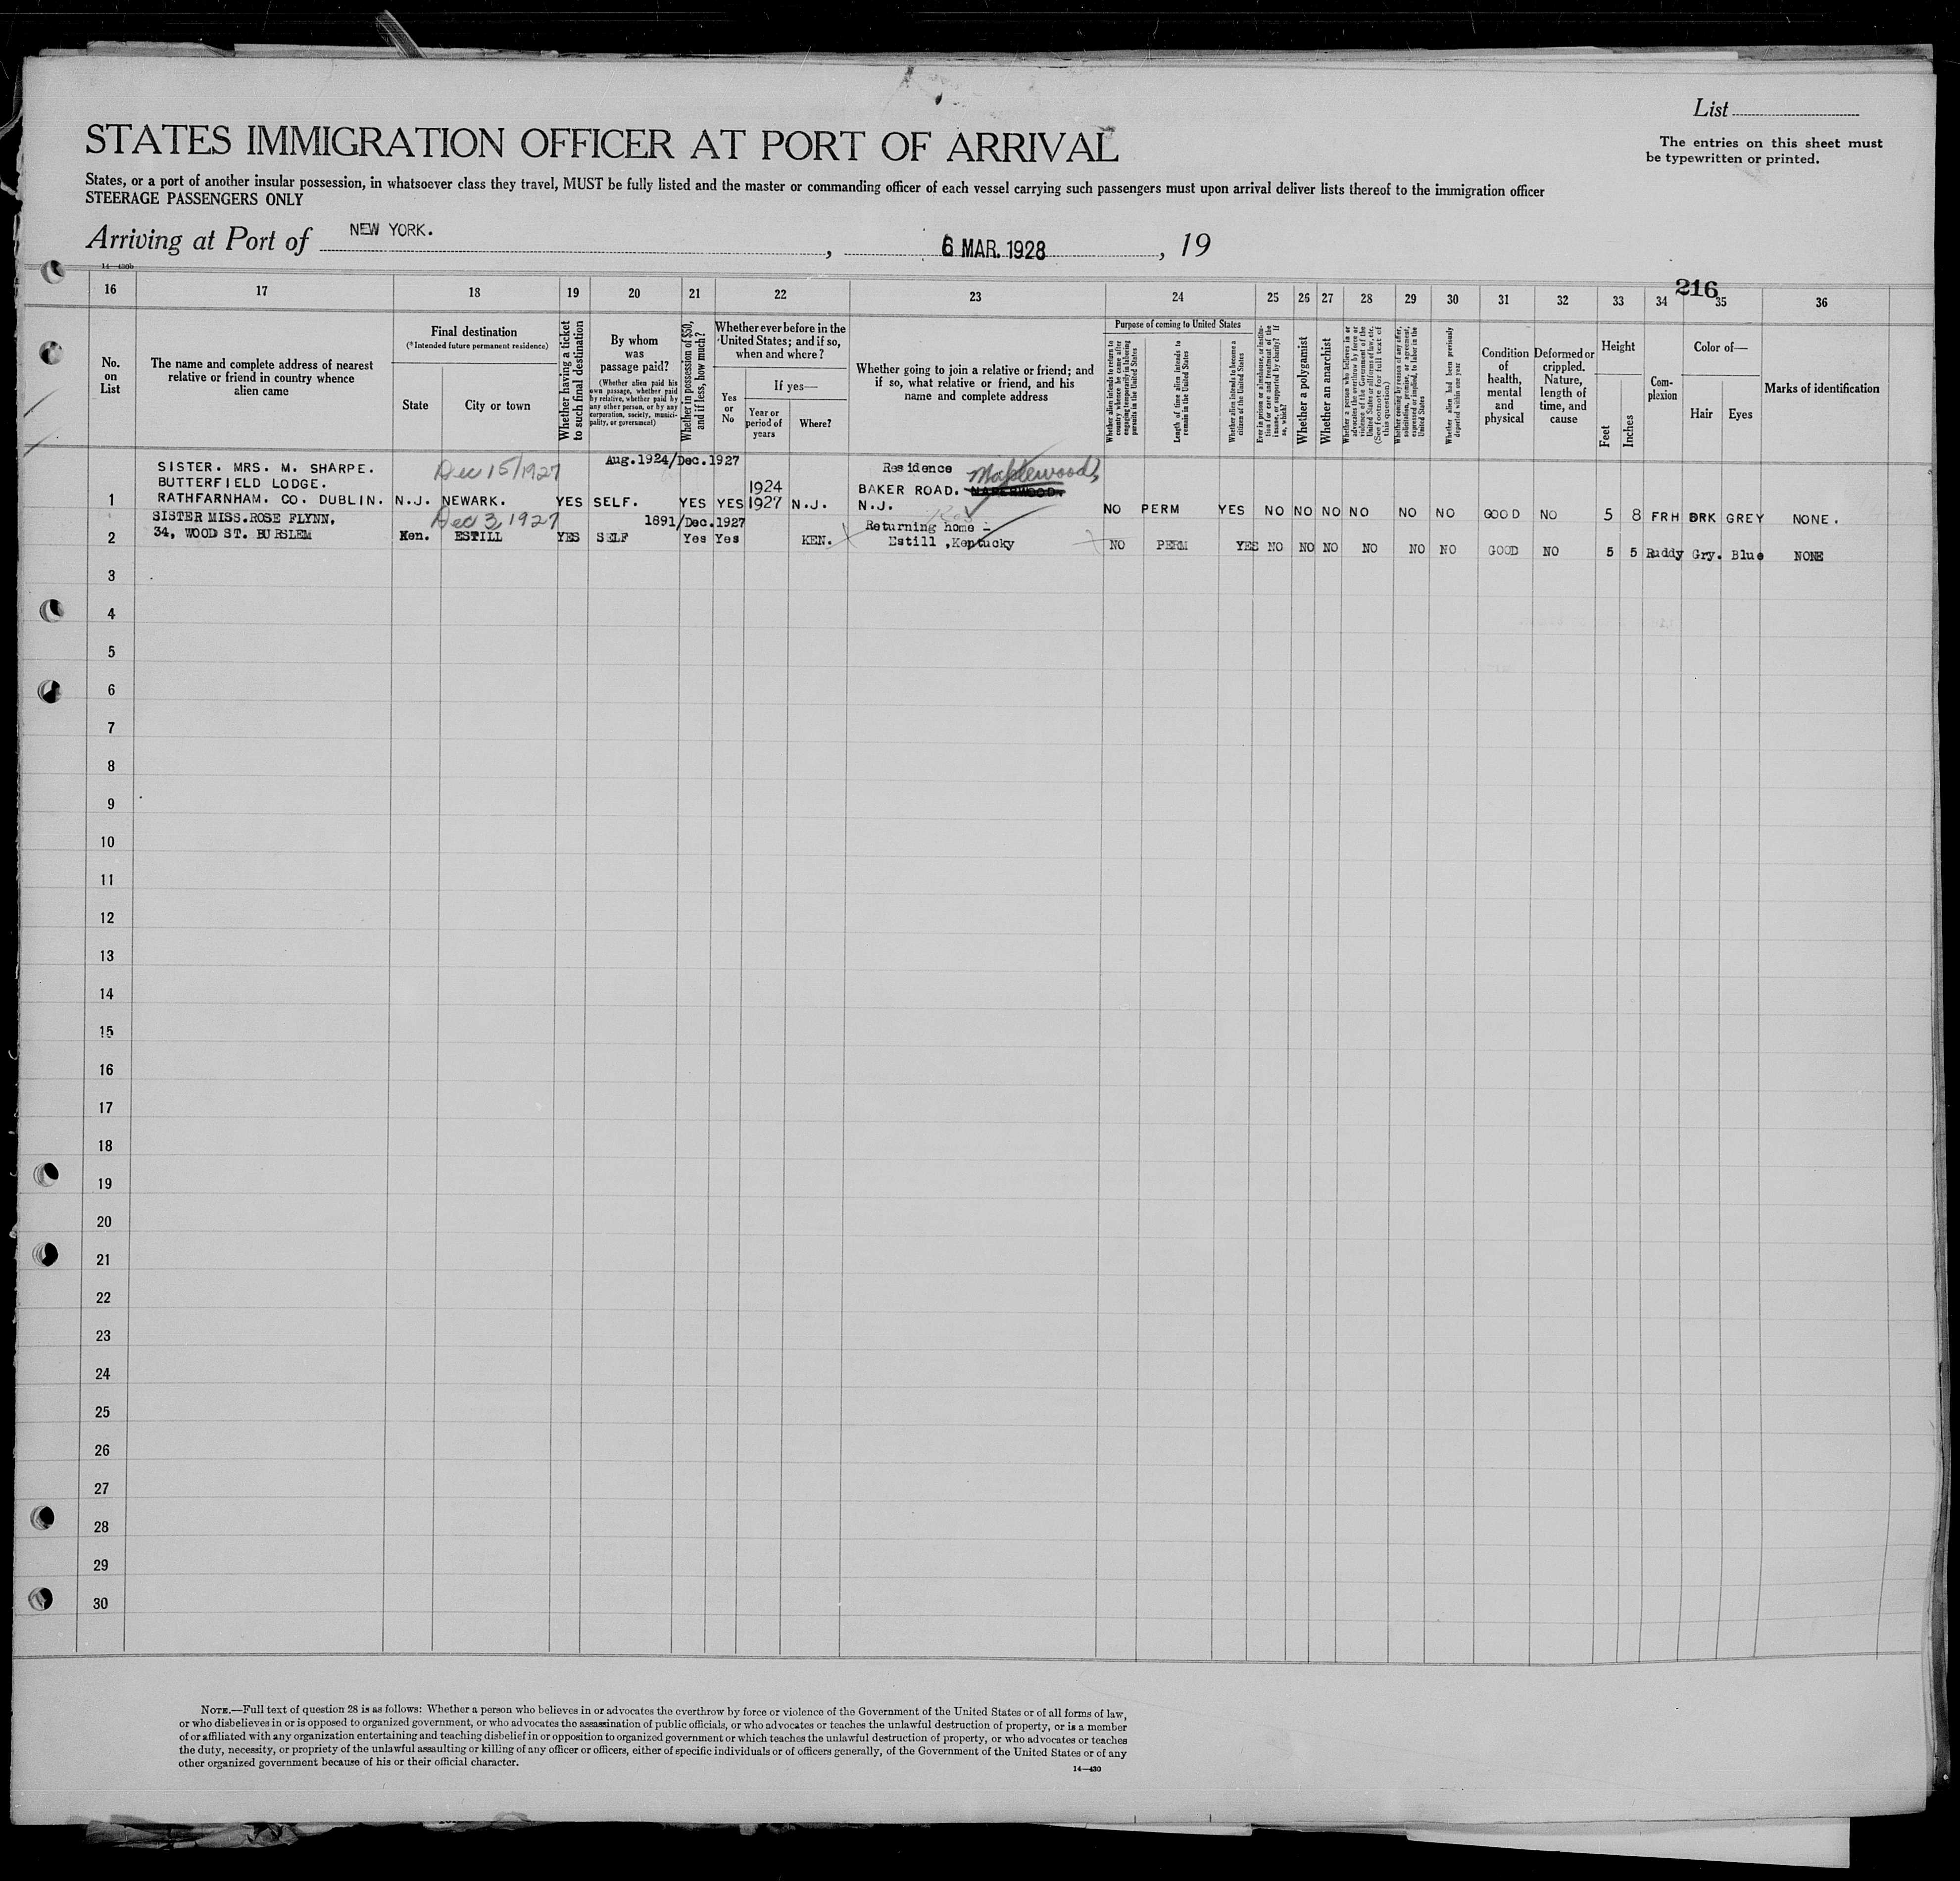 List
The entries on this sheet must
be typewritten or printed.
STATES IMMIGRATION OFFICER AT PORT OF ARRIVAL
States, or a port of another insular possession, in whatsoever class they travel, MUST be fully listed and the master or commanding officer of each vessel carrying such passengers must upon arrival deliver lists thereof to the immigration officer
STEERAGE PASSENGERS ONLY
Arriving at Port of NEW YORK. , 6 MAR. 1928 , 19
14—430b
216
16 17 18 19 20 21 22 23 24 25 26 27 28 29 30 31 32 33 34 35 36
No.
on
List
The name and complete address of nearest
relative or friend in country whence
alien came
Final destination
(* Intended future permanent residence)
State
City or town
Whether having a ticket
to such final destination
By whom
was
passage paid?
(Whether alien paid his
own passage, whether paid
by relative, whether paid by
any other person, or by any
corporation, society, munici-
pality, or government)
Whether in possession of $50,
and if less, how much?
Whether ever before in the
United States; and if so,
when and where?
Yes
or
No
If yes—
Year or
period of
years
Where?
Whether going to join a relative or friend; and
if so, what relative or friend, and his
name and complete address
Purpose of coming to United States
Whether alien intends to return to
country whence he came after
engaging temporarily in laboring
pursuits in the United States
Length of time alien intends to
remain in the United States
Whether alien intends to become a
citizen of the United States
Ever in prison or almshouse, or institu-
tion for care and treatment of the
insane, or supported by charity? If
so, which?
Whether a polygamist
Whether an anarchist
Whether a person who believes in or
advocates the overthrow by force or
violence of the Government of the
United States or all forms of law, etc.
(See footnote for full text of
this question)
Whether coming by reason of any offer,
solicitation, promise, or agreement,
expressed or implied, to labor in the
United States
Whether alien had been previously
deported within one year
Condition
of
health,
mental
and
physical
Deformed or
crippled.
Nature,
length of
time, and
cause
Height
Feet
Inches
Com-
plexion
Color of—
Hair
Eyes
Marks of identification
SISTER. MRS. M. SHARPE. Dec 15/1927 Aug.1924/Dec.1927 Residence Maplewood,
BUTTERFIELD LODGE. 1924 BAKER ROAD. MAPERWOOD.
1 RATHFARNHAM. CO. DUBLIN. N.J. NEWARK. YES SELF. YES YES 1927 N.J. N.J. NO PERM YES NO NO NO NO NO NO GOOD NO 5 8 FRH DRK GREY NONE.
SISTER MISS.ROSE FLYNN, Dec 3, 1927 1891/Dec.1927 Returning home -
2 34, WOOD ST. BURSLEM Ken. ESTILL YES SELF Yes Yes KEN. Estill ,Kentucky NO PERM YES NO NO NO NO NO NO GOOD NO 5 5 Ruddy Gry. Blue NONE
3
4
5
6
7
8
9
10
11
12
13
14
15
16
17
18
19
20
21
22
23
24
25
26
27
28
29
30
NOTE.—Full text of question 28 is as follows: Whether a person who believes in or advocates the overthrow by force or violence of the Government of the United States or of all forms of law,
or who disbelieves in or is opposed to organized government, or who advocates the assassination of public officials, or who advocates or teaches the unlawful destruction of property, or is a member
of or affiliated with any organization entertaining and teaching disbelief in or opposition to organized government or which teaches the unlawful destruction of property, or who advocates or teaches
the duty, necessity, or propriety of the unlawful assaulting or killing of any officer or officers, either of specific individuals or of officers generally, of the Government of the United States or of any
other organized government because of his or their official character.
14—430